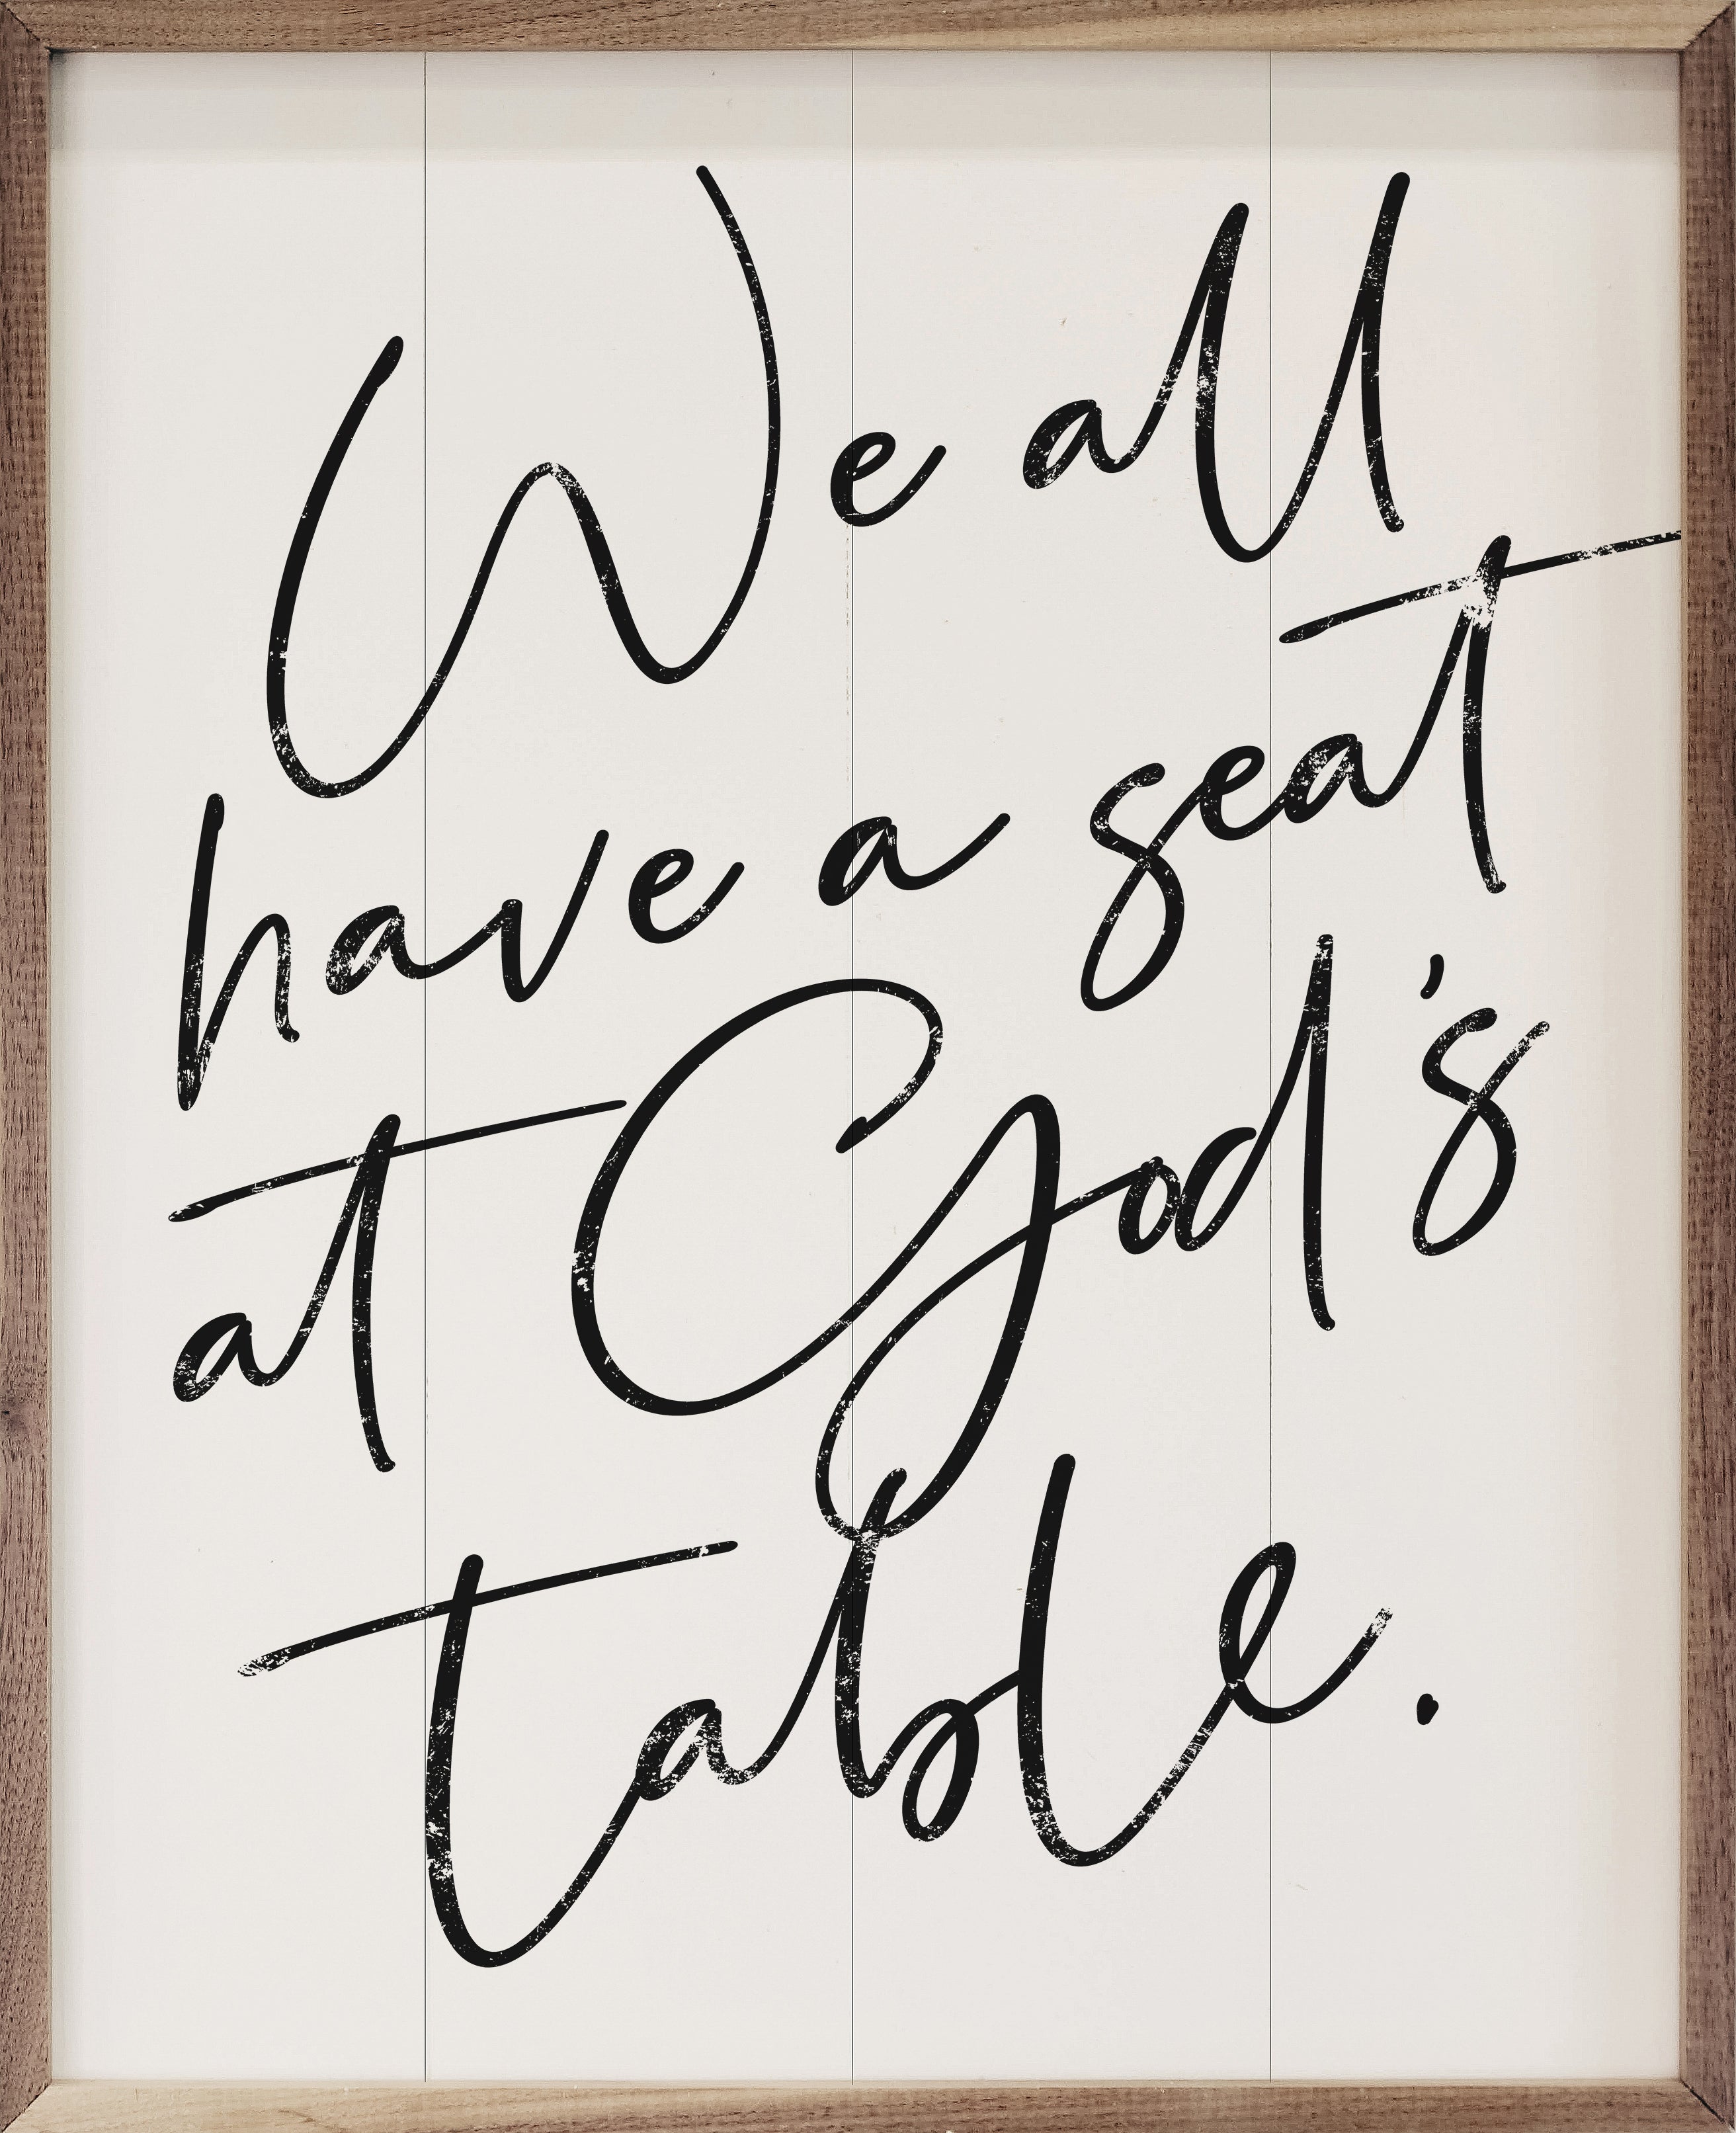 We all
have a seat
at God's
table.